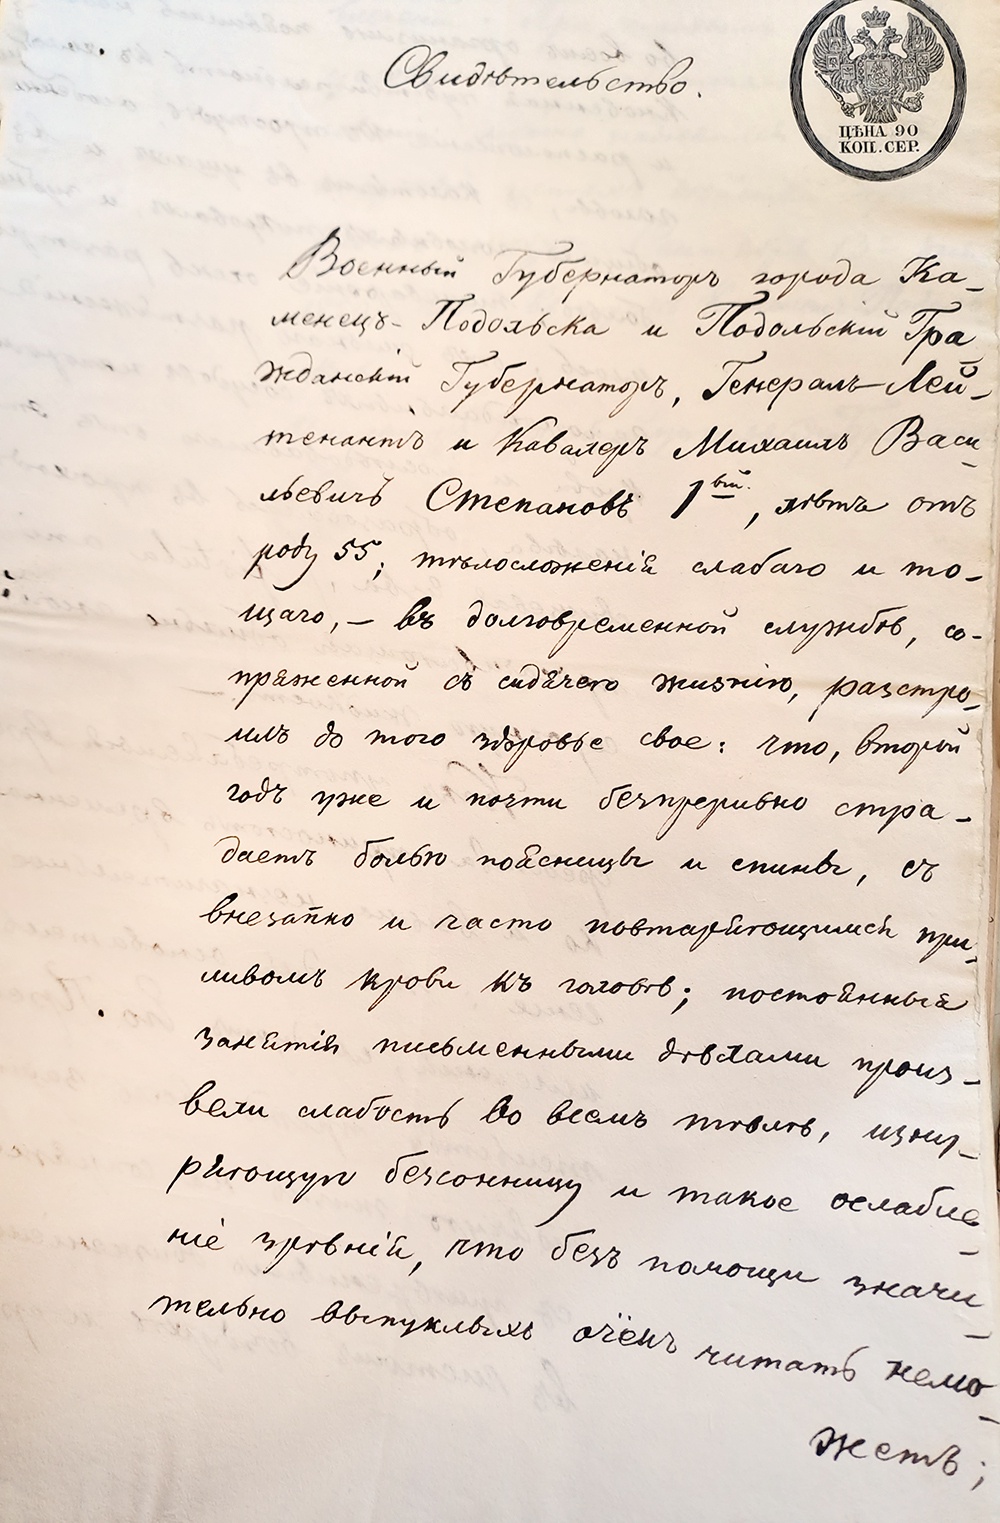 Свидѣтельство.
ЦѢНА 90
КОП. СЕР.
Военный Губернаторъ города Ка-
менецъ-Подольска и Подольскій Гра
жданскій Губернаторъ, Генералъ-Лей-
тенантъ и Кавалеръ Михаилъ Васи-
льевичъ Степановъ 1вый, лѣтъ отъ
роду 55; тѣлосложенія слабаго и то-
щаго, - въ долговременной службѣ, со-
пряженной съ сидячею жизнію, разстро-
илъ до того здоровье свое: что, второй
годъ уже и почти безпрерывно стра-
даетъ болью поясницы и спины, съ
внезапно и часто повторяющимся при-
ливомъ крови къ головѣ; постоянныя
занятія письменными дѣлами произ-
вели слабость во всемъ тѣлѣ, изну-
ряющую безсонницу и такое ослабле-
ніе зрѣнія, что безъ помощи значи-
тельно выпуклыхъ очекъ читать немо-
жетъ;